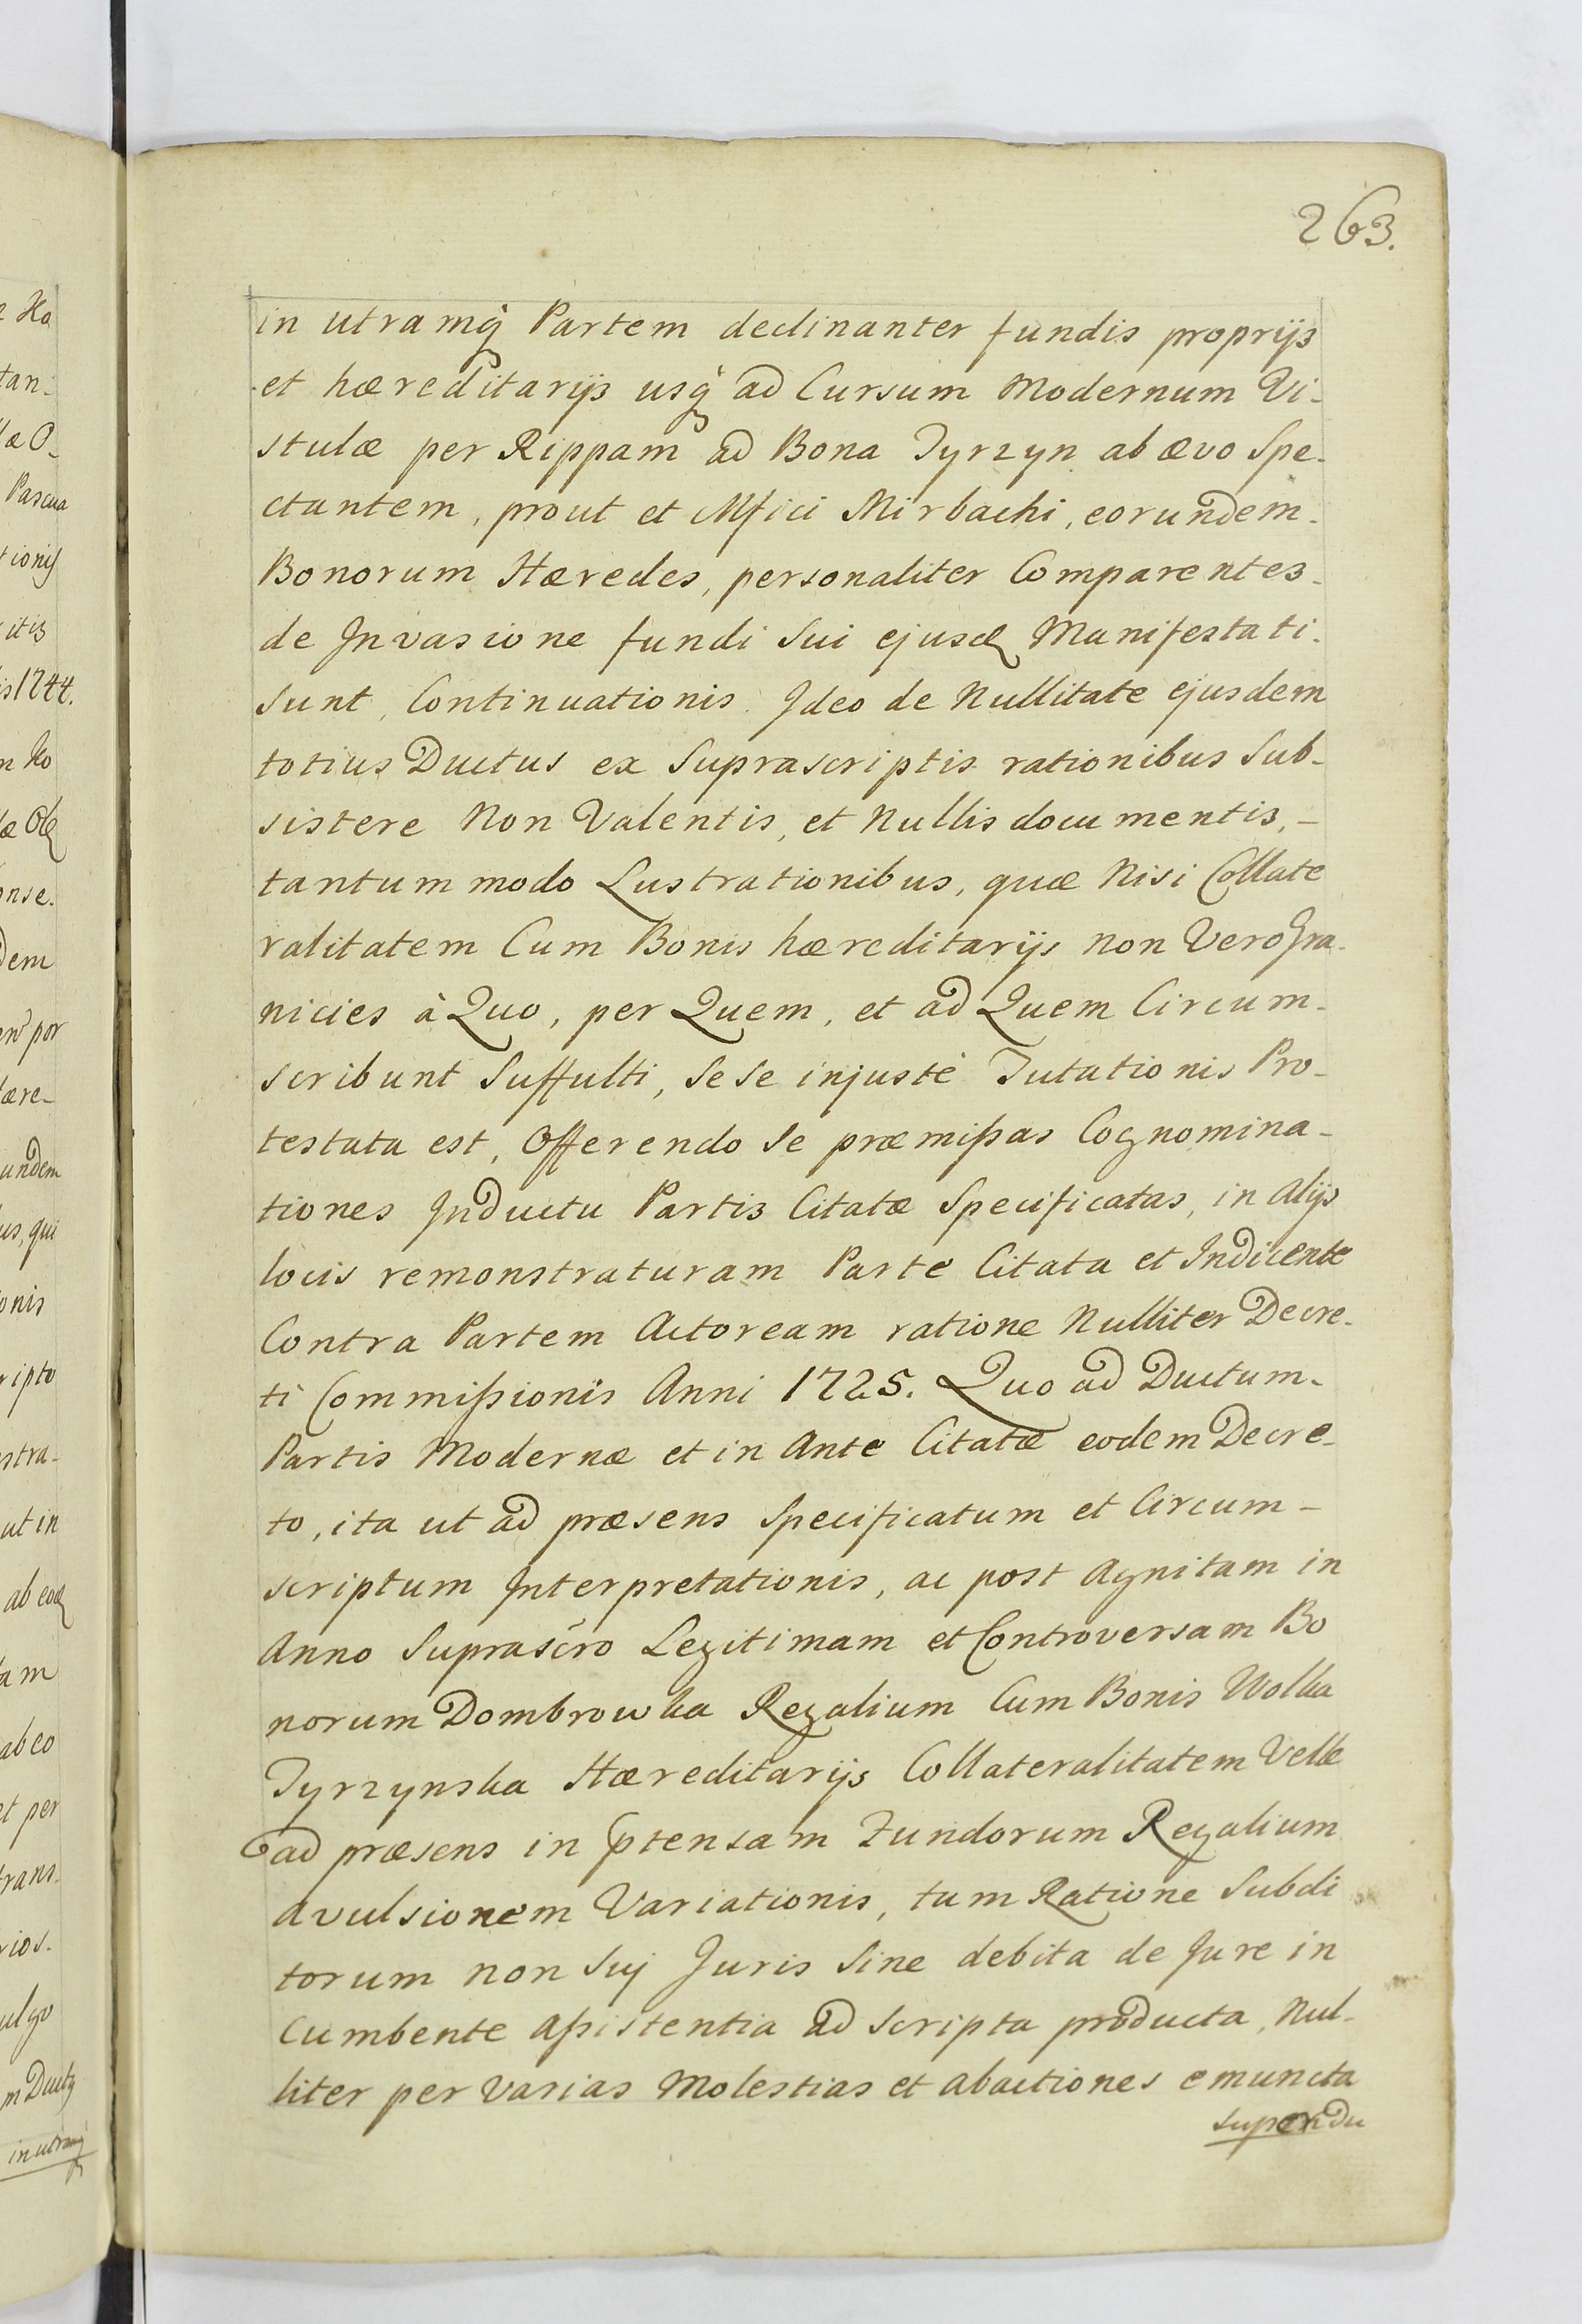 263.
in utramq Partem declinanter fundis proprijs
et hæreditarijs usq ad Cursum Modernum Vi-
stulæ per Rippam ad Bona Tyrzyn ab ævo Spe-
ctantem, prout et Mfici Mirbachi, eorundem
Bonorum Hæredes, personaliter Comparentes
de Invasione fundi Sui ejusd Manifestati
Sunt, Continuationis. Ideo de Nullitate ejusdem
totius Ductus ex Suprascriptis rationibus Sub-
sistere Non Valentis, et Nullis documentis, -
tantummodo Lustrationibus, quæ Nisi Collate
ralitatem Cum Bonis hæreditarijs non Vero Gra-
nicies à Quo, per Quem, et ad Quem Circum-
scribunt Suffulti, Sese injustè Tutationis Pro-
testata est, Offerendo Se præmissas Cognomina-
tiones Inductu Partis Citatæ Specificatas, in alijs
locis remonstraturam Parte Citata et Indicente
Contra Partem Actoream ratione Nulliter Decre-
ti Commissionis Anni 1725. Quo ad Ductum
Partis Modernæ et in Ante Citatæ eodem Decre-
to, ita ut ad præsens Specificatum et Circum-
scriptum Interpretationis, ac post Agnitam in
Anno Suprascro Legitimam et Controversam Bo
norum Dombrowka Regalium Cum Bonis Wolka
Tyrzynska Hæreditarijs Collateralitatem Velle
ad præsens in ptensam Fundorum Regalium
avulsionem Variationis, tum Ratione Subdi
torum non Suj Juris Sine debita de Jure in
Cumbente assistentia ad scripta producta, Nul-
liter per Varias Molestias et abactiones emuncta
super Du
e Ha
tan-
læ O-
Pascua
tionis
itis
is 1744.
m Ko
onse.
dem
por
ære-
undem
us, qui
onis
ripto
stra-
ut in
ab eod
am
ab eo
et per
trans-
rios.
ulgo
m Ductq
in utramq